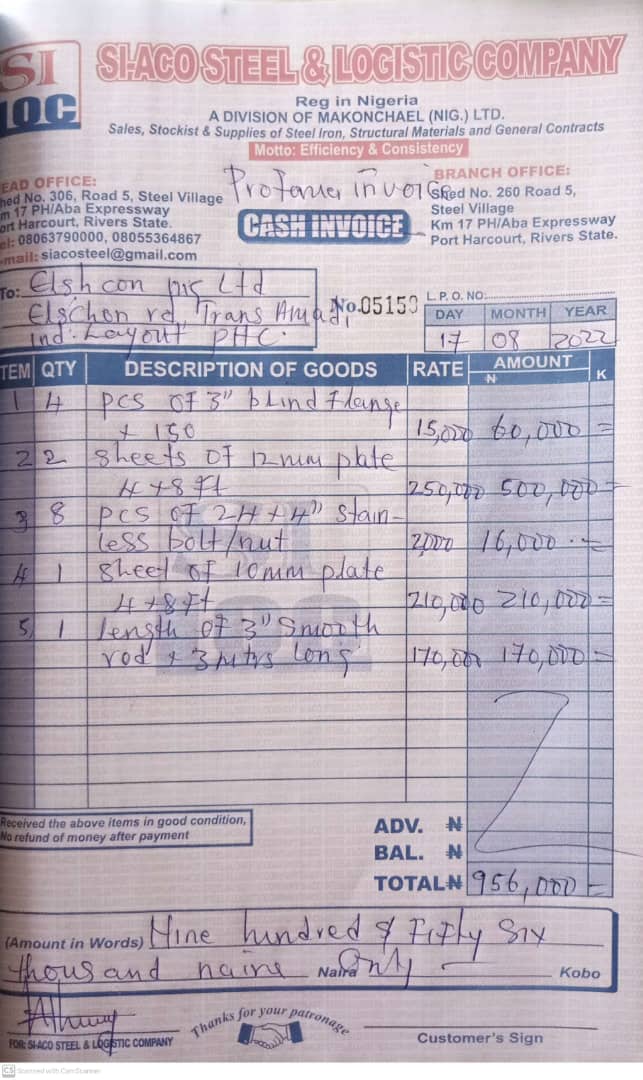 SI
LOC
SI-ACO STEEL & LOGISTIC COMPANY
Reg in Nigeria
A DIVISION OF MAKONCHAEL (NIG.) LTD.
Sales, Stockist & Supplies of Steel Iron, Structural Materials and General Contracts
Motto: Efficiency & Consistency
EAD OFFICE:
hed No. 306, Road 5, Steel Village
m 17 PH/Aba Expressway
ort Harcourt, Rivers State.
el: 08063790000, 08055364867
-mail: siacosteel@gmail.com
invoice
CASH INVOICE
BRANCH OFFICE:
Shed No. 260 Road 5,
Steel Village
Km 17 PH/Aba Expressway
Port Harcourt, Rivers State.
To: Elshcon Ltd
rd, Trans Amadi,
Ind. Layout PHC.
No.05159
L.P.O. NO:
DAY MONTH YEAR
17 08 2022
TEM QTY DESCRIPTION OF GOODS RATE AMOUNT
₦ K
1 4 pcs of 3" blind flange
x 150 15,000 60,000 =
2 2 sheets of 12mm plate
4x8ft 250,000 500,000 =
3 8 pcs of 24x4" Stain-
less bolt/nut 2,000 16,000 =
4 1 sheet of 10mm plate
4x8ft 210,000 210,000 =
5, 1 length of 3" Smooth
rod x 3 mtrs long 170,000 170,000 =
Received the above items in good condition,
No refund of money after payment
ADV. ₦
BAL. ₦
TOTAL ₦ 956,000 =
(Amount in Words) Nine hundred & Fifty Six
thousand naira Naira Only Kobo
FOR: SI-ACO STEEL & LOGISTIC COMPANY
Thanks for your patronage
Customer's Sign
CS Scanned with CamScanner